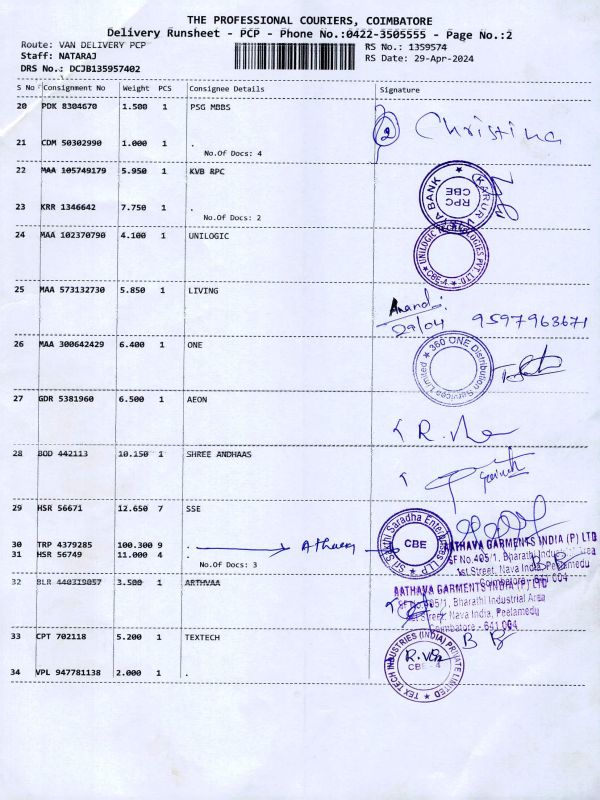 THE PROFESSIONAL COURIERS, COIMBATORE
Delivery Runsheet - PCP - Phone No.:0422-3505555 - Page No.:2
Route: VAN DELIVERY PCP
RS No.: 1359574
Staff: NATARAJ
RS Date: 29-Apr-2024
DRS No.: DCJB135957402
S No Consignment No Weight PCS Consignee Details Signature
20 PDK 8304670 1.500 1 PSG MBBS
2 Christina
21 CDM 50302990 1.000 1 .
No.Of Docs: 4
22 MAA 105749179 5.950 1 KVB RPC
KARUR VYSYA BANK RPC CBE
23 KRR 1346642 7.750 1 .
No.Of Docs: 2
24 MAA 102370790 4.100 1 UNILOGIC
UNILOGIC TECHNOLOGIES PVT. LTD.
25 MAA 573132730 5.850 1 LIVING
Anand
29/04 9597963671
26 MAA 300642429 6.400 1 ONE
360 ONE Distribution Services Limited
27 GDR 5381960 6.500 1 AEON
28 BOD 442113 10.150 1 SHREE ANDHAAS
29 HSR 56671 12.650 7 SSE
Sri Sakthi Saradha Enterprises LLP CBE
30 TRP 4379285 100.300 9 .
31 HSR 56749 11.000 4 .
No.Of Docs: 3
AATHAVA GARMENTS INDIA (P) LTD
SF No.405/1, Bharathi Industrial Area
1st Street, Nava India, Peelamedu
Coimbatore - 641 004
32 BLR 440319057 3.500 1 ARTHVAA
AATHAVA GARMENTS INDIA (P) LTD
SF No.405/1, Bharathi Industrial Area
1st Street, Nava India, Peelamedu
Coimbatore - 641 004
33 CPT 702118 5.200 1 TEXTECH
TEX TECH INDUSTRIES (INDIA) PRIVATE LIMITED
CBE - 4
34 VPL 947781138 2.000 1 .